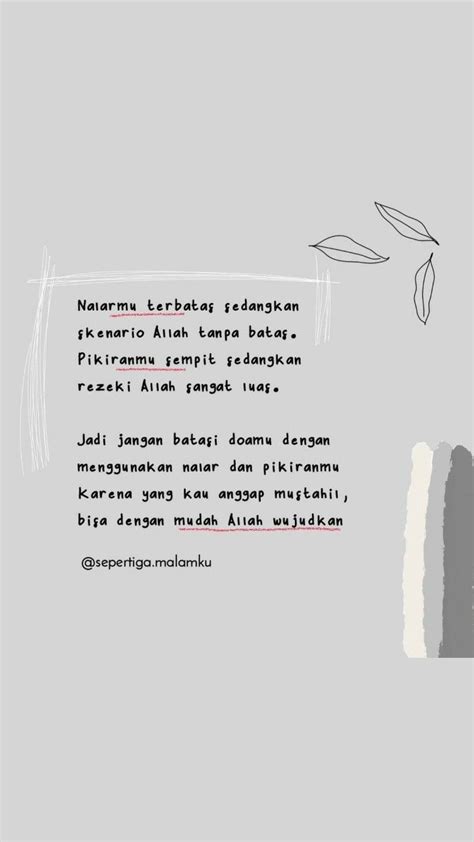 Nalarmu terbatas sedangkan
skenario Allah tanpa batas.
Pikiranmu sempit sedangkan
rezeki Allah sangat luas.
Jadi jangan batasi doamu dengan
menggunakan nalar dan pikiranmu
Karena yang kau anggap mustahil,
bisa dengan mudah Allah wujudkan
@sepertiga.malamku